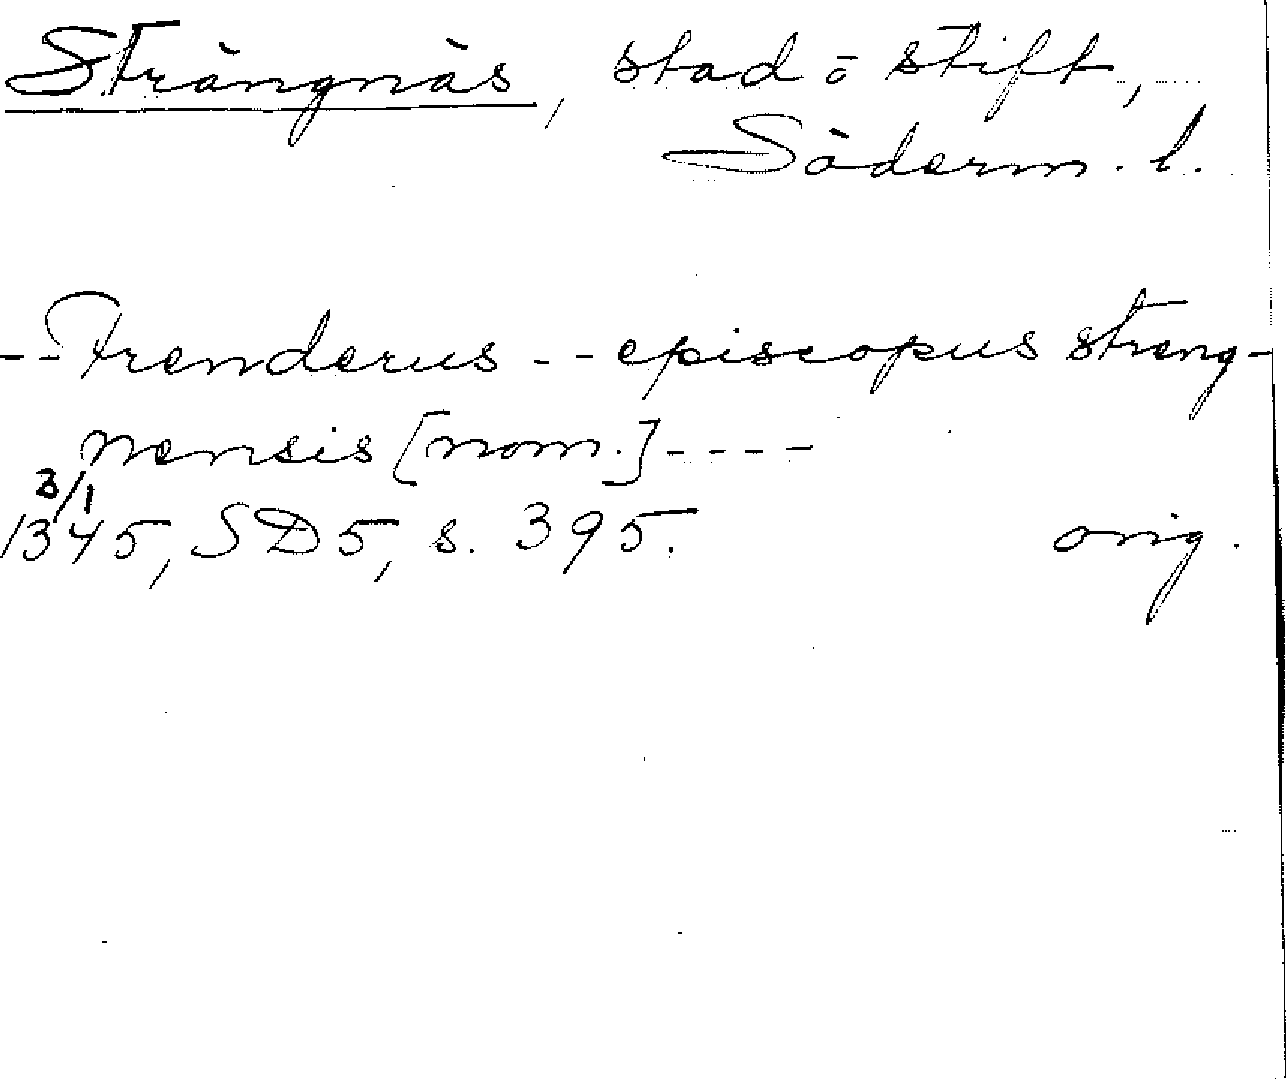 Strängnäs, stad o stift,
Söderm. l.
-- Frenderus -- episcopus streng-
nensis [nom.] ----
3/1
1345, SD 5, s. 395. orig.